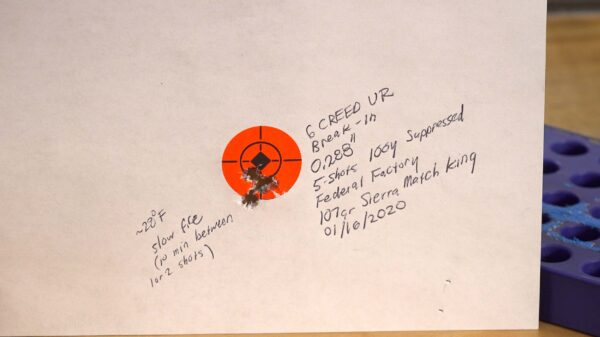 6 CREED UR
Break-In
0.288"
5-shots 100y Suppressed
Federal Factory
107gr Sierra Match King
01/16/2020
~20°F
slow fire
(10 min between
1 or 2 shots)